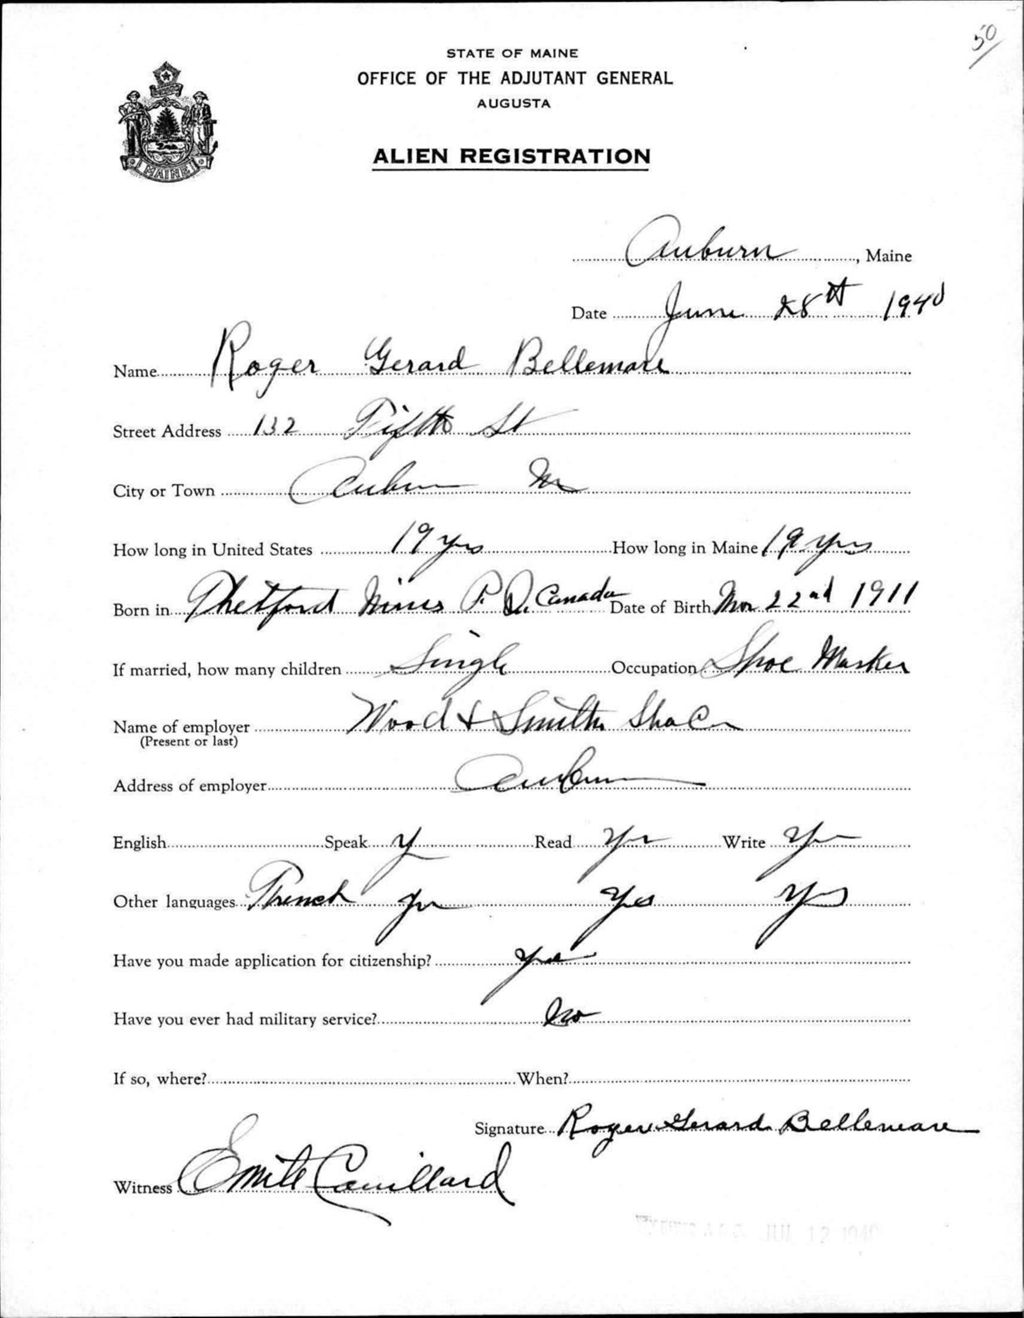 50
STATE OF MAINE
OFFICE OF THE ADJUTANT GENERAL
AUGUSTA
ALIEN REGISTRATION
MAINE
Auburn, Maine
Date June 28th 1940
Name Roger Gerard Bellemare
Street Address 132 Fifth St
City or Town Auburn Me
How long in United States 19 yrs How long in Maine 19 yrs
Born in Thetford Mines P. Q. Canada Date of Birth 22nd 1911
If married, how many children Single Occupation Shoe Worker
Name of employer Wood & Smith Shoe Co
(Present or last)
Address of employer Auburn
English Speak Y Read Yes Write Yes
Other languages French yes Yes Yes
Have you made application for citizenship? Yes
Have you ever had military service? No
If so, where? When?
Signature Roger Gerard Bellemare
Witness Emile Couillard
JUL 12 1940